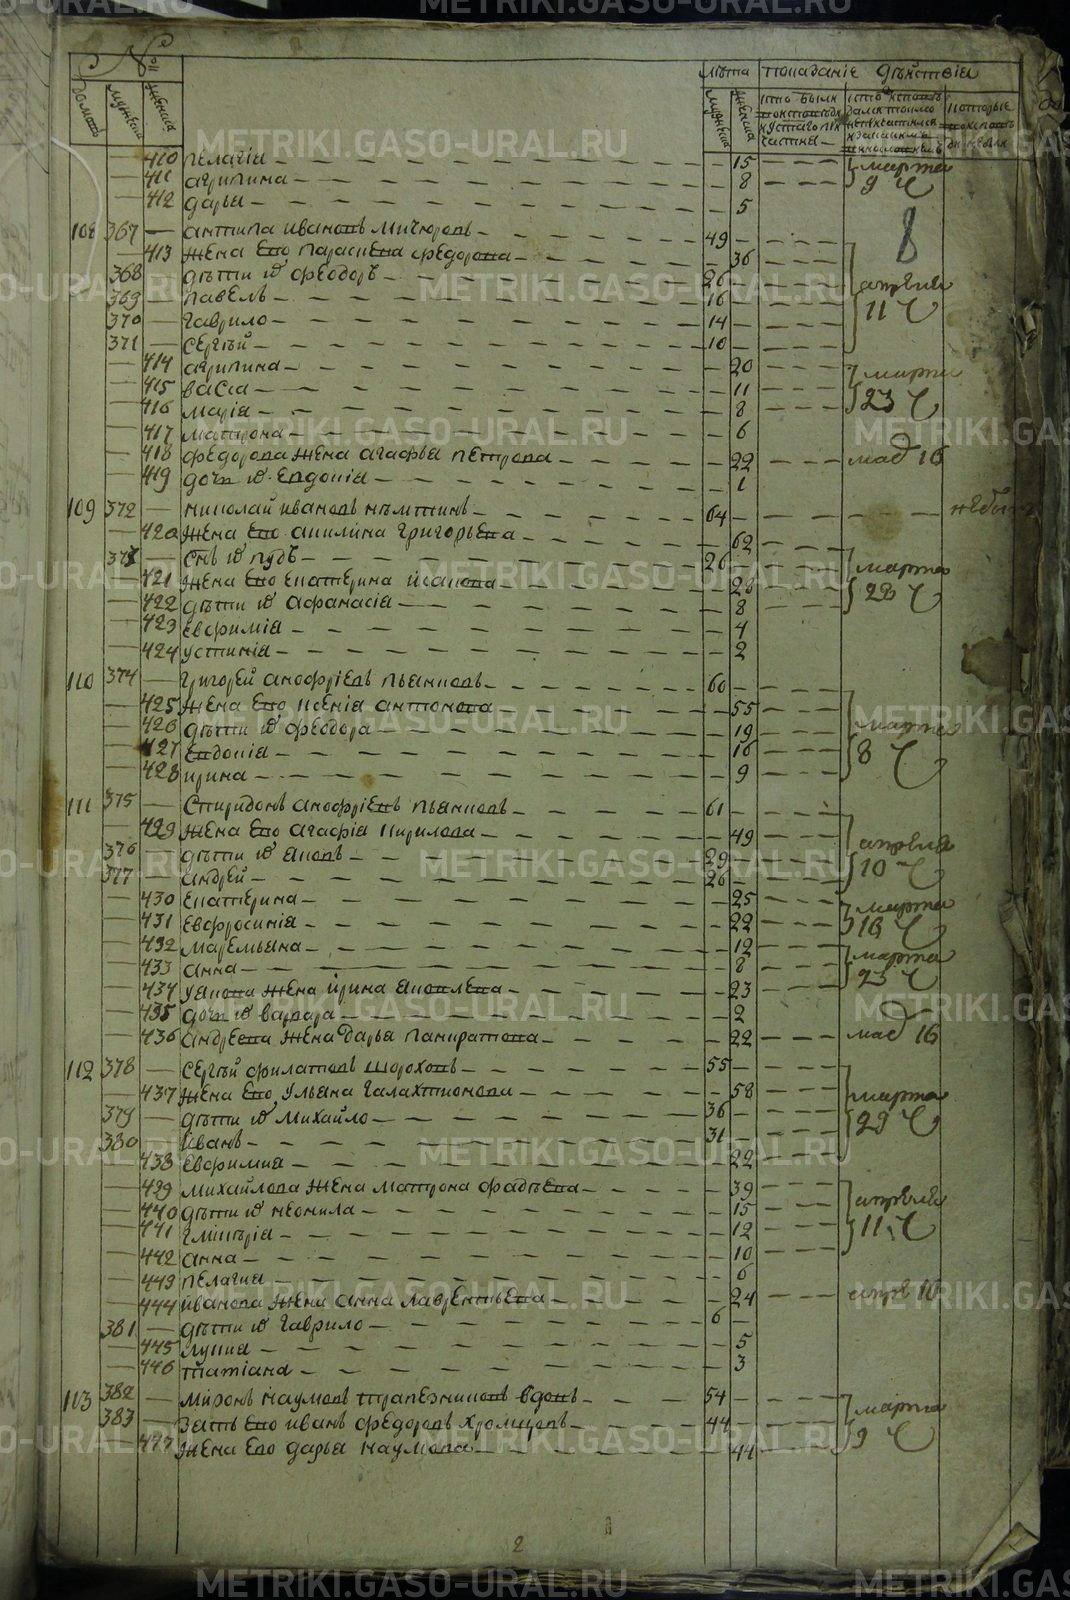 №
домовъ мужеска женска лѣта покаянiе дѣйствiе
мужеска женска
410 пелагiа 15 марта
411 агрипина 8 9 Ч
412 дарья 5
8
108 367 антипа ивановъ мичюровъ 49
413 жена ево параскева федорова 36
368 дѣти ихъ феодоръ 26 апреля
369 павелъ 16 11 Ч
370 гаврило 14
371 сергѣй 10
414 агрипина 20 марта
415 васса 11 23 Ч
416 марiа 8
417 матрона 6
418 федорова жена агафья петрова 22 маа 16
419 дочь ихъ евдокiа 1
109 372 николай ивановъ 64 небылъ
420 жена ево акилина григорьева 62
373 сынъ ихъ пудъ 26 марта
421 жена ево екатерина исакова 28 28 Ч
422 дѣти ихъ афанасiа 8
423 евфимiа 4
424 устинiа 2
110 374 григорей анофрiевъ пьянковъ 60
425 жена ево ксенiа антонова 55
426 дѣти ихъ феодора 19 марта
427 евдокiа 16 8 Ч
428 ирина 9
111 375 спиридонъ анофрiевъ пьянковъ 61
429 жена ево агафiа кирилова 49 апреля
376 дѣти ихъ яковъ 29 10 Ч
377 андрей 26
430 екатерина 25 марта
431 евфросинiа 22 16 Ч
432 маремьяна 12 марта
433 анна 8 23 Ч
434 якова жена ирина яковлева 23
435 дочь ихъ варвара 2
436 андреева жена дарья панкратова 22 маа 16
112 378 сергѣй филатовъ шороховъ 55
437 жена ево ульяна галахтионова 58 марта
379 дѣти ихъ михайло 36 29 Ч
380 иванъ 31
438 евфимиа 22
429 михайлова жена матрона фадѣева 39 апреля
440 дѣти ихъ неонила 15 11 Ч
441 гликѣрiа 12
442 анна 10
443 пелагиа 6
444 иванова жена анна лаврентьева 24 апре 10
381 дѣти ихъ гаврило 6
445 лукиа 5
446 татiана 3
113 382 миронъ наумовъ трапезниковъ вдовъ 54
383 зять ево иванъ федоровъ хромцовъ 44 марта
477 жена ево дарья наумова 44 9 Ч
2
METRIKI.GASO-URAL.RU